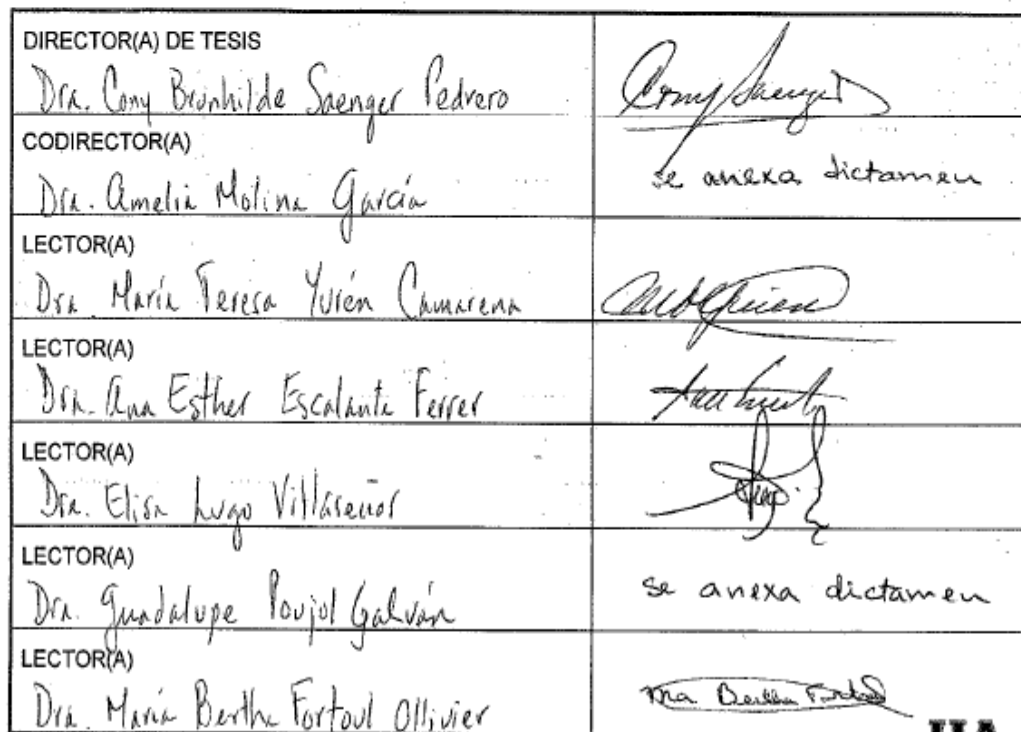 DIRECTOR(A) DE TESIS
Dra. Cony Brunhilde Saenger Pedrero
Cony Saenger
CODIRECTOR(A)
Dra. Amelia Molina García
se anexa dictamen
LECTOR(A)
Dra. María Teresa Yurén Camarena
LECTOR(A)
Dra. Ana Esther Escalante Ferrer
LECTOR(A)
Dra. Elisa Lugo Villaseñor
LECTOR(A)
Dra. Guadalupe Poujol Galván
se anexa dictamen
LECTOR(A)
Dra. María Bertha Fortoul Ollivier
Ma Bertha Fortoul